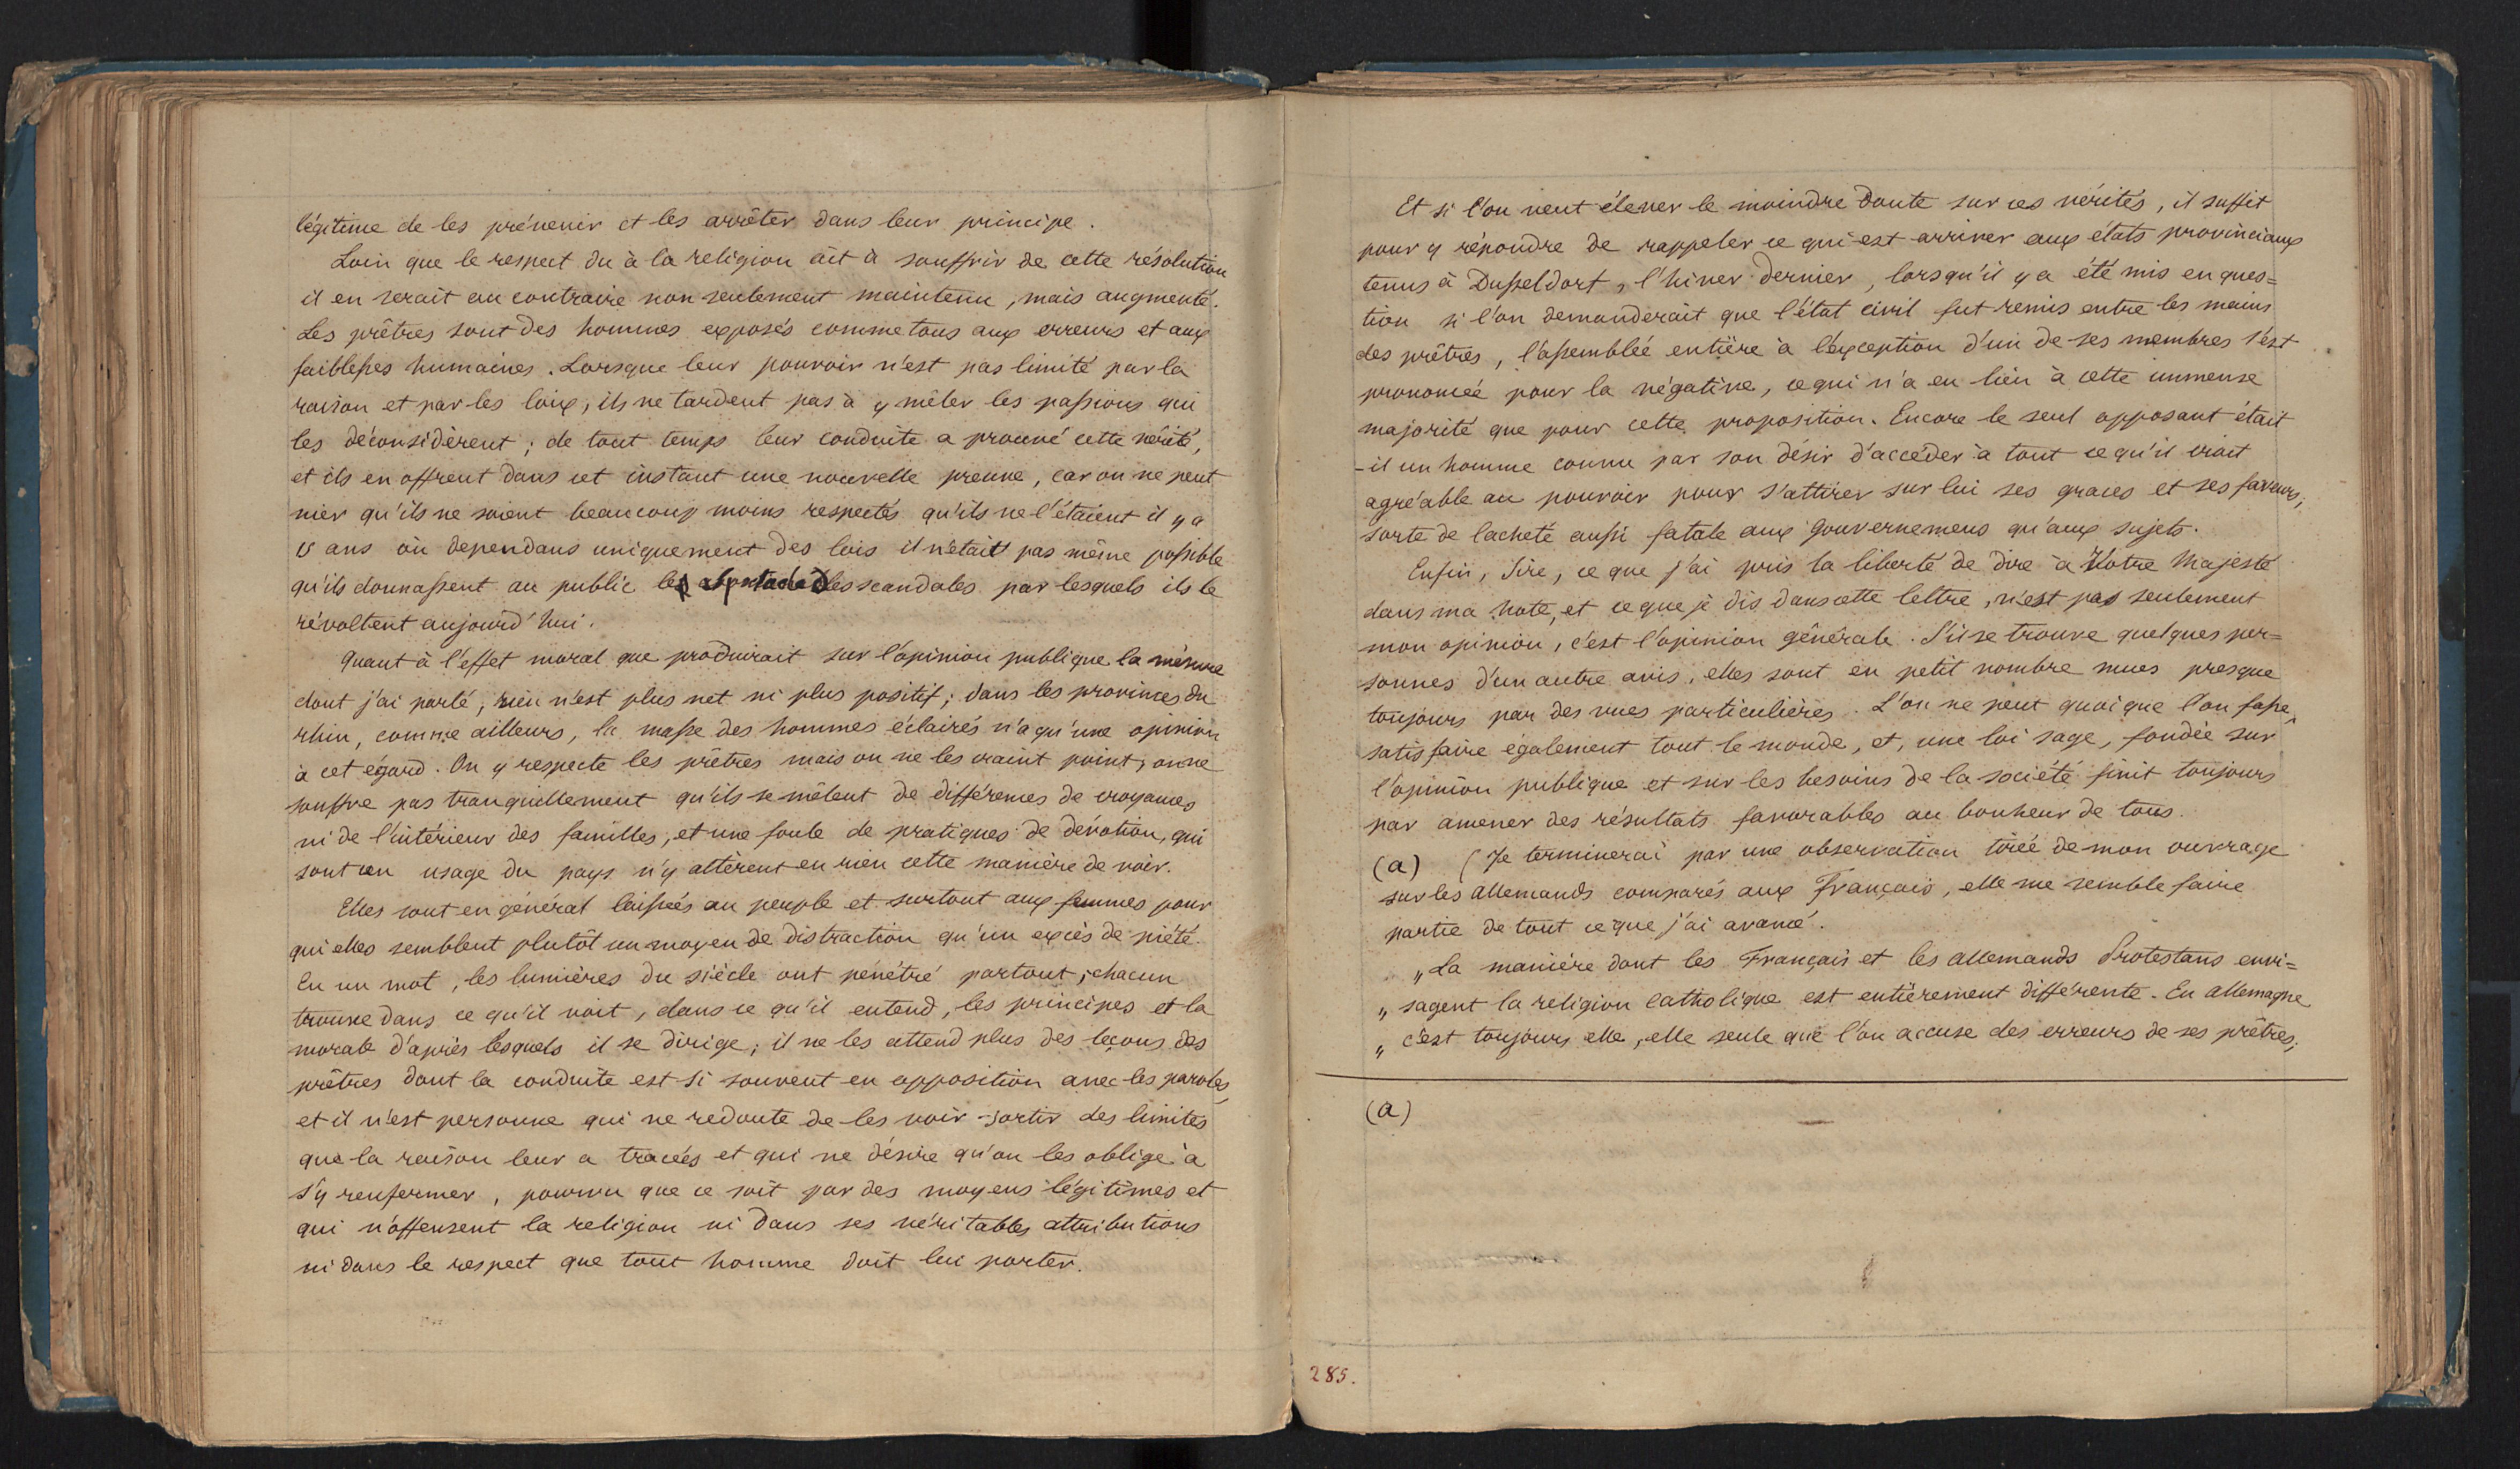 légitime de les prévenir et les arrêter dans leur principe.
Loin que le respect du à la religion ait à souffrir de cette résolution
il en serait au contraire non seulement maintenu, mais augmenté.
Les prêtres sont des hommes exposés comme tous aux erreurs et aux
faiblesses humaines. Lorsque leur pouvoir n'est pas limité par la
raison et par les loix, ils ne tardent pas à y mêler les passions qui
les déconsidèrent; de tout temps leur conduite a prouvé cette vérité,
et ils en offrent dans cet instant une nouvelle preuve, car on ne peut
nier qu'ils ne soient beaucoup moins respectés qu'ils ne l'étaient il y a
15 ans où dependans uniquement des lois il n'était pas même possible
qu'ils donnassent au public les scandales par lesquels ils le
révoltent aujourd'hui.
Quant à l'effet moral que produirait sur l'opinion publique la mésure
dont j'ai parlé, rien n'est plus net ni plus positif; dans les provinces du
rhin, comme ailleurs, la masse des hommes éclairés n'a qu'une opinion
à cet égard. On y respecte les prêtres mais on ne les craint point, on ne
souffre pas tranquillement qu'ils se mêlent de différences de croyances
ni de l'intérieur des familles, et une foule de pratiques de dévotion, qui
sont en usage du pays n'y altèrent en rien cette manière de voir.
Elles sont en général laissées au peuple et surtout aux femmes pour
qui elles semblent plutôt un moyen de distraction qu'un excès de piété.
En un mot, les lumières du siècle ont pénétré partout; chacun
trouve dans ce qu'il voit, dans ce qu'il entend, les principes et la
morale d'après lesquels il se dirige; il ne les attend plus des leçons des
prêtres dont la conduite est si souvent en opposition avec les paroles,
et il n'est personne qui ne redoute de les voir sortir des limites
que la raison leur a tracées et qui ne désire qu'on les oblige à
s'y renfermer, pourvu que ce soit par des moyens légitimes et
qui n'offensent la religion ni dans ses véritables attributions
ni dans le respect que tout homme doit lui porter.
Et si l'on veut élever le moindre doute sur ces vérités, il suffit
pour y répondre de rappeler ce qui est arriver aux états provinciaux
tenus à Dusseldorf, l'hiver dernier, lorsqu'il y a été mis en ques=
tion si l'on demanderait que l'état civil fut remis entre les mains
des prêtres, l'assemblée entière à l'exception d'un de ses membres s'est
prononcée pour la négative, ce qui n'a eu lieu à cette immense
majorité que pour cette proposition. Encore le seul opposant était
-il un homme connu par son désir d'accéder à tout ce qu'il croit
agréable au pouvoir pour s'attirer sur lui ses graces et ses faveurs,
sorte de lacheté aussi fatale aux gouvernemens qu'aux sujets.
Enfin, Sire, ce que j'ai pris la liberté de dire à Votre Majesté
dans ma note, et ce que je dis dans cette lettre, n'est pas seulement
mon opinion, c'est l'opinion générale. S'il se trouve quelques per=
sonnes d'un autre avis, elles sont en petit nombre mues presque
toujours par des vues particulières. L'on ne peut quoique l'on fasse,
satisfaire également tout le monde, et, une loi sage, fondée sur
l'opinion publique et sur les besoins de la société finit toujours
par amener des résultats favorables au bonheur de tous.
(a) (Je terminerai par une observation tirée de mon ouvrage
sur les allemands comparés aux Français, elle me semble faire
partie de tout ce que j'ai avancé.
„La manière dont les Français et les allemands Protestans envi=
„sagent la religion catholique est entièrement différente. En allemagne
„c'est toujours elle, elle seule que l'on accuse des erreurs de ses prêtres;
(a)
285.